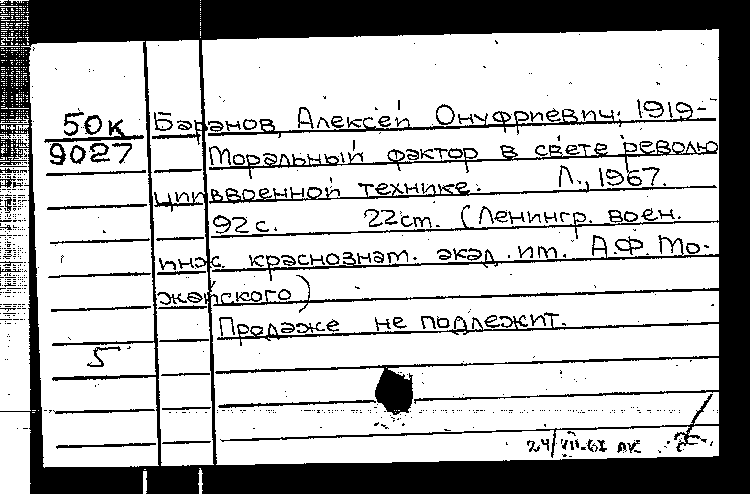 50к Баранов, Алексей Онуфриевич, 1919-
9027 Моральный фактор в свете револю
ции в военной технике. Л., 1967.
92с. 22см. (Ленингр. воен.
инж. краснознам. акад. им. А.Ф. Мо-
жайского)
Продаже не подлежит.
5
24/VII-67